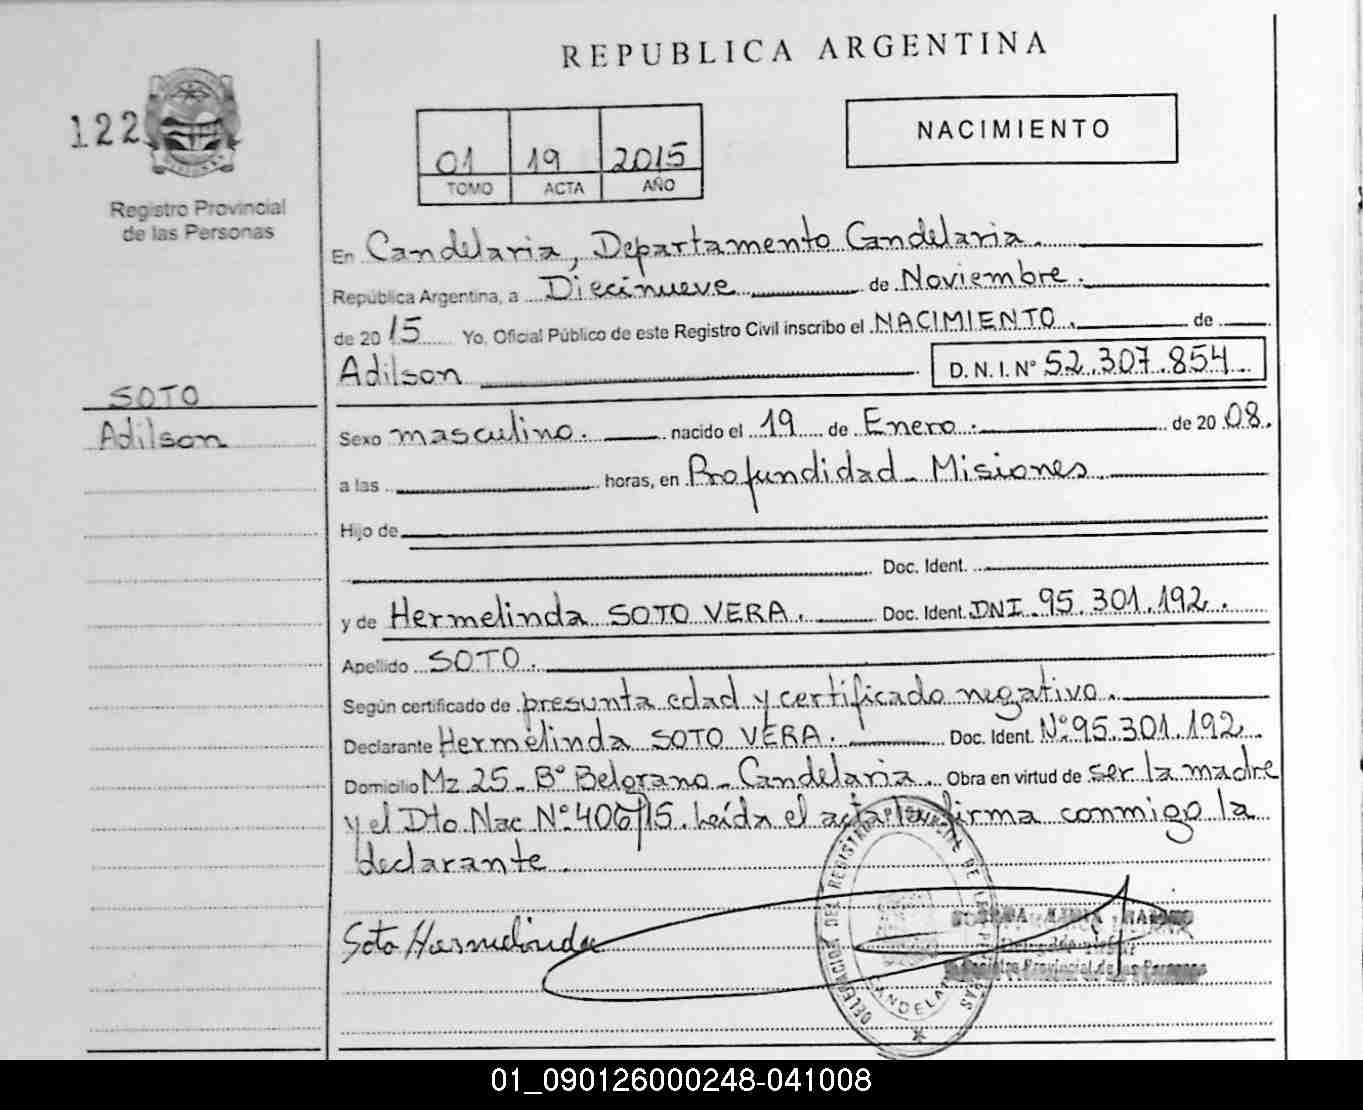 REPUBLICA ARGENTINA
122
Registro Provincial
de las Personas
01 19 2015
TOMO ACTA AÑO
NACIMIENTO
En Candelaria, Departamento Candelaria.
República Argentina, a Diecinueve de Noviembre.
de 2015 Yo, Oficial Público de este Registro Civil inscribo el NACIMIENTO. de
Adilson D. N. I. N° 52.307.854
SOTO
Adilson
Sexo masculino. nacido el 19 de Enero. de 2008.
a las horas, en Profundidad - Misiones
Hijo de
Doc. Ident.
y de Hermelinda SOTO VERA. Doc. Ident. DNI 95.301.192.
Apellido SOTO.
Según certificado de presunta edad y certificado negativo.
Declarante Hermelinda SOTO VERA. Doc. Ident. N° 95.301.192.
Domicilio Mz 25 - B° Belgrano - Candelaria. Obra en virtud de ser la madre
y el Dto Nac N° 406/15. Leída el acta la firma conmigo la
declarante.
Soto Hermelinda
DELEGACION DEL REGISTRO PROVINCIAL DE LAS PERSONAS
CANDELARIA
Registro Provincial de las Personas
01_090126000248-041008